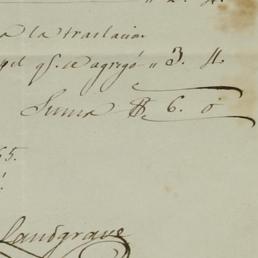 " 2. 4.
a la traslacion
gel qᵉ. se agregó " 3. 4.
Suma $ 6. 0
65.
Landgrave